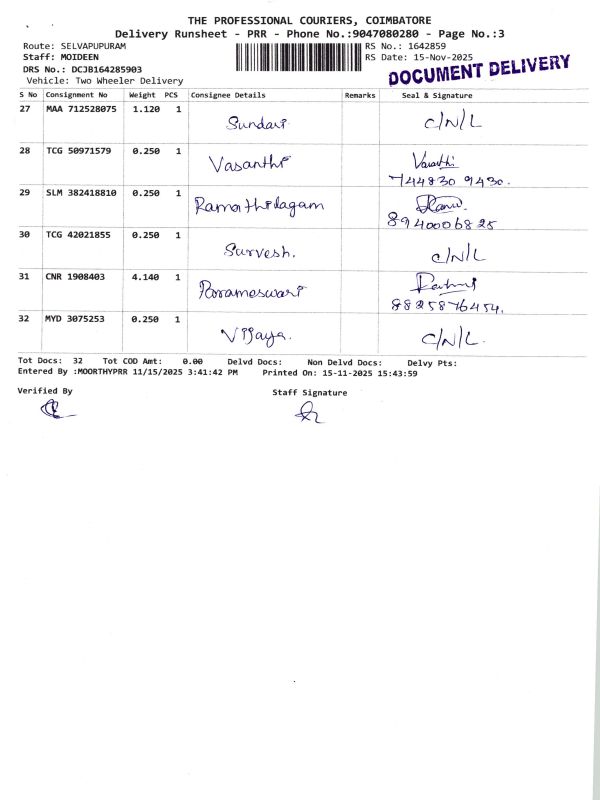 THE PROFESSIONAL COURIERS, COIMBATORE
Delivery Runsheet - PRR - Phone No.:9047080280 - Page No.:3
Route: SELVAPUPURAM RS No.: 1642859
Staff: MOIDEEN RS Date: 15-Nov-2025
DRS No.: DCJB164285903
Vehicle: Two Wheeler Delivery
DOCUMENT DELIVERY
S No Consignment No Weight PCS Consignee Details Remarks Seal & Signature
27 MAA 712528075 1.120 1 Sundari C/N/L
28 TCG 50971579 0.250 1 Vasanthi Vasathi
744830 9430.
29 SLM 382418810 0.250 1 Ramathilagam
8940006825
30 TCG 42021855 0.250 1 Survesh. C/N/L
31 CNR 1908403 4.140 1 Parameswari
8825876454.
32 MYD 3075253 0.250 1 Vijaya. C/N/L.
Tot Docs: 32 Tot COD Amt: 0.00 Delvd Docs: Non Delvd Docs: Delvy Pts:
Entered By :MOORTHYPRR 11/15/2025 3:41:42 PM Printed On: 15-11-2025 15:43:59
Verified By Staff Signature